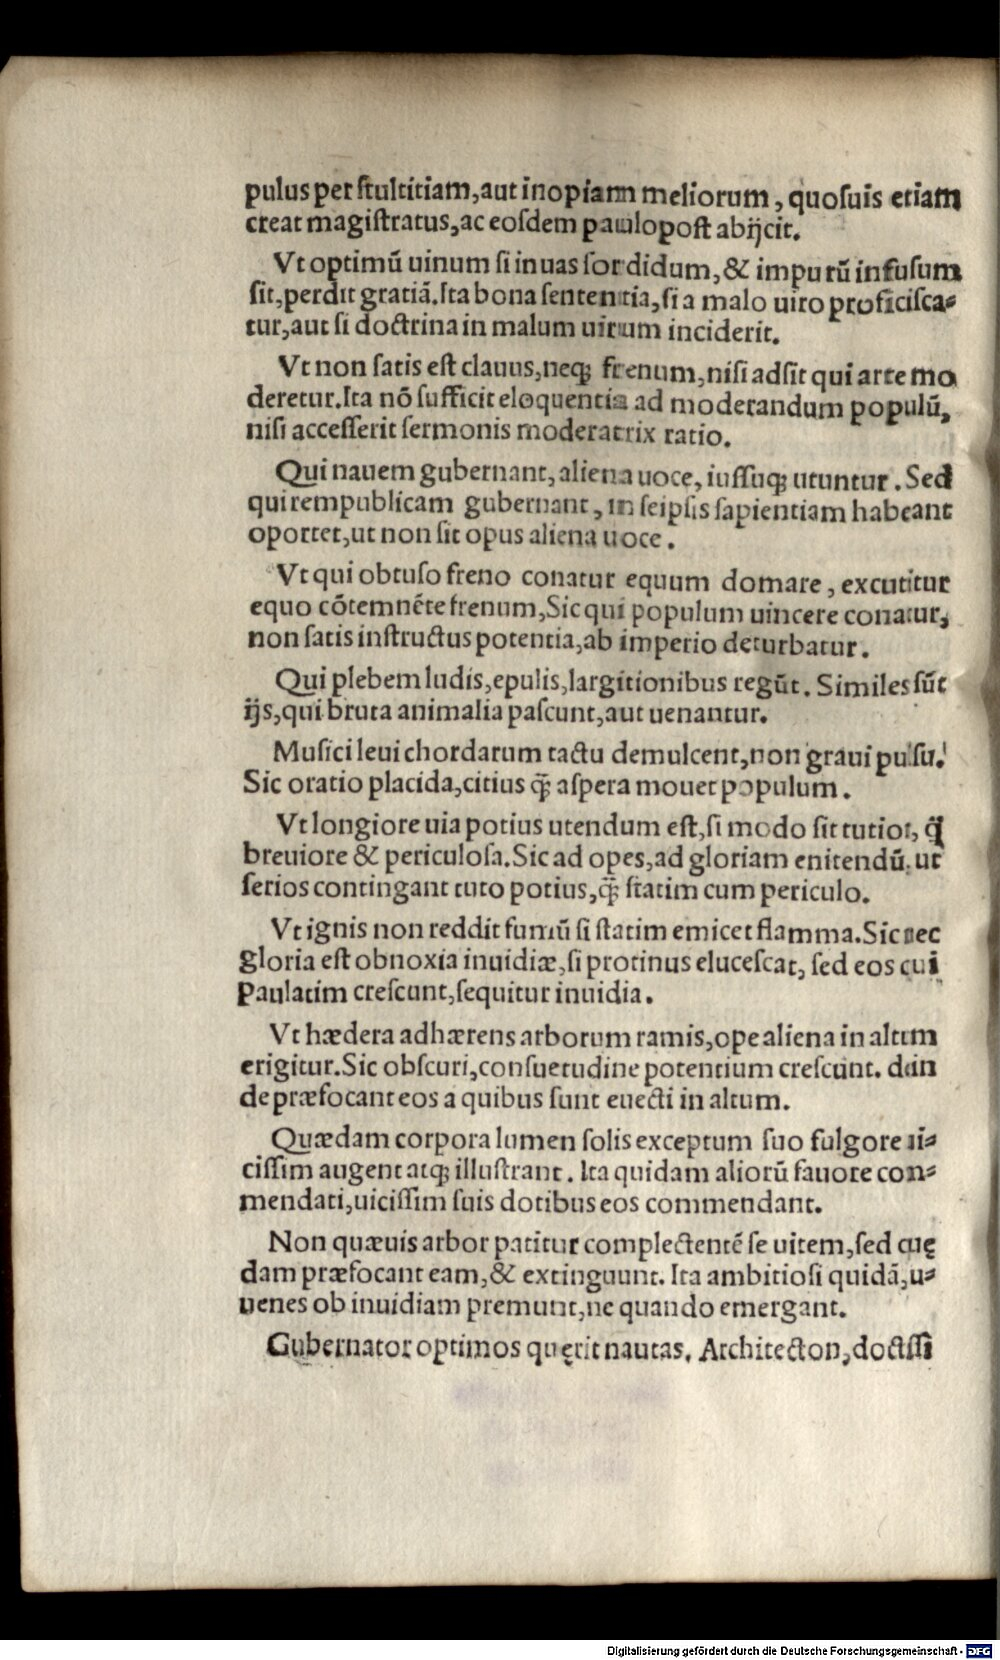 pulus per stultitiam,aut inopiam meliorum, quosuis etiam
creat magistratus,ac eosdem paulopost abijcit.
Vt optimũ uinum si in uas sordidum,& impurũ infusum
sit,perdit gratiã.Ita bona sententia,si a malo uiro proficisca⸗
tur,aut si doctrina in malum uirum inciderit.
Vt non satis est clauus,neqꝫ frenum,nisi adsit qui arte mo
deretur.Ita nõ sufficit eloquentia ad moderandum populũ,
nisi accesserit sermonis moderatrix ratio.
Qui nauem gubernant,aliena uoce, iussuqꝫ utuntur. Sed
qui rempublicam gubernant, in seipsis sapientiam habeant
oportet,ut non sit opus aliena uoce.
Vt qui obtuso freno conatur equum domare, excutitur
equo cõtemnẽte frenum,Sic qui populum uincere conatur,
non satis instructus potentia,ab imperio deturbatur.
Qui plebem ludis,epulis,largitionibus regũt. Similes sũt
ijs,qui bruta animalia pascunt,aut uenantur.
Musici leui chordarum tactu demulcent,non graui pulsu.
Sic oratio placida,citius q̃ aspera mouet populum.
Vt longiore uia potius utendum est,si modo sit tutior, q̃
breuiore & periculosa.Sic ad opes,ad gloriam enitendũ, ut
serios contingant tuto potius,q̃ statim cum periculo.
Vt ignis non reddit fumũ si statim emicet flamma.Sic nec
gloria est obnoxia inuidiæ,si protinus elucescat, sed eos cui
paulatim crescunt,sequitur inuidia.
Vt hædera adhærens arborum ramis,ope aliena in altum
erigitur.Sic obscuri,consuetudine potentium crescunt. dein
de præfocant eos a quibus sunt euecti in altum.
Quædam corpora lumen solis exceptum suo fulgore ui⸗
cissim augent atqꝫ illustrant. Ita quidam aliorũ fauore com⸗
mendati,uicissim suis dotibus eos commendant.
Non quæuis arbor patitur complectentẽ se uitem,sed quę
dam præfocant eam,& extinguunt. Ita ambitiosi quidã,iu⸗
uenes ob inuidiam premunt,ne quando emergant.
Gubernator optimos quęrit nautas. Architecton,doctissi
Digitalisierung gefördert durch die Deutsche Forschungsgemeinschaft - DFG